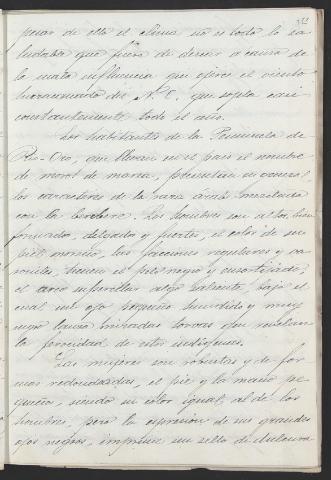 pesar de ella el clima no es todo lo sa-
ludable que fuera de desear á causa de
la mala influencia que ejerce el viento
huracanado del N.E. que sopla casi
constantemente todo el año.
Los habitantes de la Peninsula de
Rio-Oro, que llevan en el pais el nombre
de moros de marea, presentan en general
los caracteres de la raza árabe mezclada
con la bereber. Los hombres son altos, bien
formados, delgados y fuertes, el color de su
piel moreno, las facciones regulares y va-
roniles, tienen el pelo negro y ensortijado,
el arco superciliar algo saliente, bajo el
cual un ojo pequeño hundido y muy
negro lanza miradas torvas que revelan
la ferocidad de estos indigenas.
Las mujeres son robustas y de for-
mas redondeadas, el pié y la mano pe-
queños, siendo su color igual al de los
hombres, pero la espresion de sus grandes
ojos negros, imprime un sello de dulzura